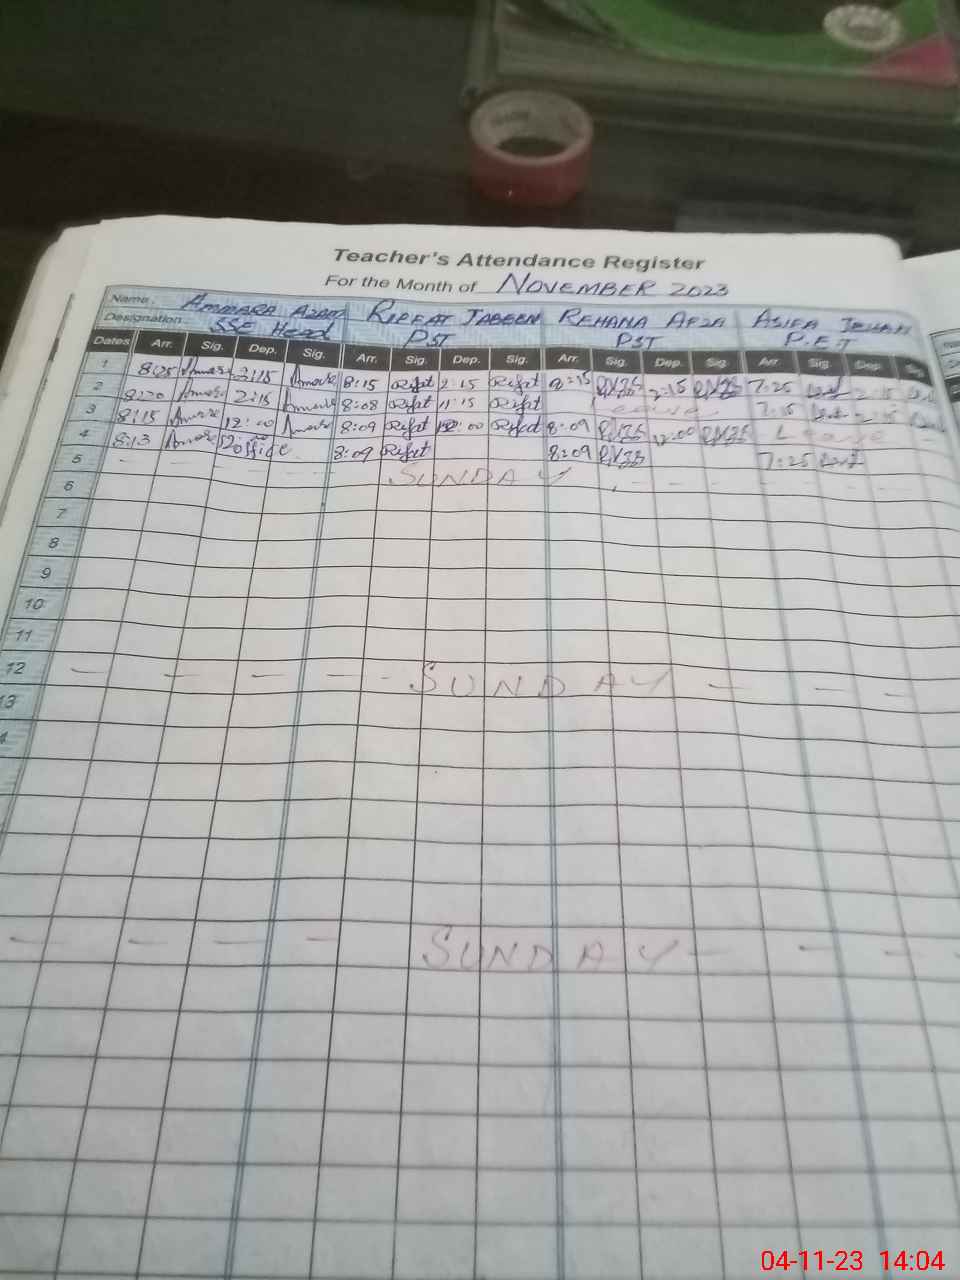 Teacher's Attendance Register
For the Month of NOVEMBER 2023
Name: AMMARA AZAM RIFFAT JABEEN REHANA AFZA ASIFA JEHAN
Designation SSE Head PST PST P.E.T
Dates Arr. Sig. Dep. Sig. Arr. Sig. Dep. Sig. Arr. Sig. Dep. Sig. Arr. Sig. Dep. Sig.
1 8:25 2:15 8:15 Riffat 2:15 Riffat 8:15 2:15 7:25 2:15
2 8:20 2:15 8:08 Riffat 11:15 Riffat Leave 7:15 2:15
3 8:15 12:00 8:09 Riffat 12:00 Riffat 8:09 12:00 Leave
4 8:13 office 8:09 Riffat 8:09 7:25
5 SUNDAY
6
7
8
9
10
11
12 SUNDAY
13
SUNDAY
04-11-23 14:04